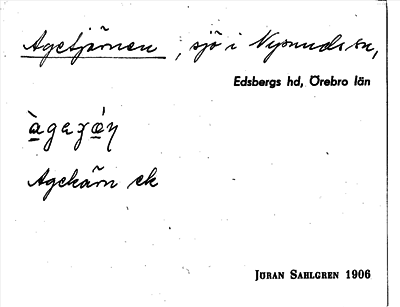 Agetjärnen, sjö i Nysunds sn,
Edsbergs hd, Örebro län
Agekärn ek
JÖRAN SAHLGREN 1906